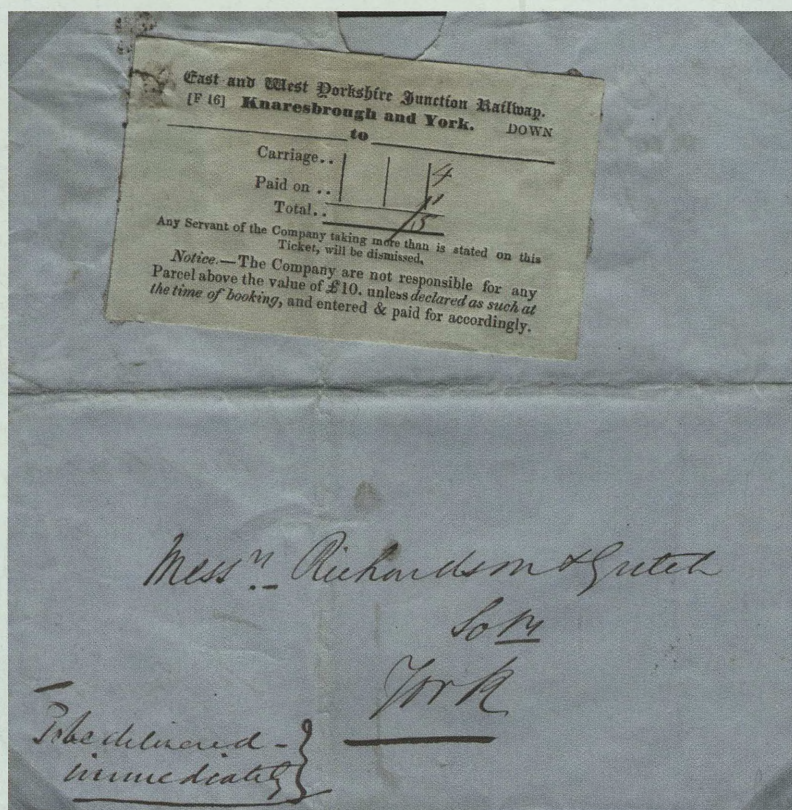 East and West Yorkshire Junction Railway.
[F 16] Knaresbrough and York. DOWN
to
Carriage.. 4
Paid on .. 1
Total.. 5
Any Servant of the Company taking more than is stated on this
Ticket, will be dismissed.
Notice.—The Company are not responsible for any
Parcel above the value of £10. unless declared as such at
the time of booking, and entered & paid for accordingly.
Messrs. Richardson & Gutch
Solrs
York
To be delivered -
immediately